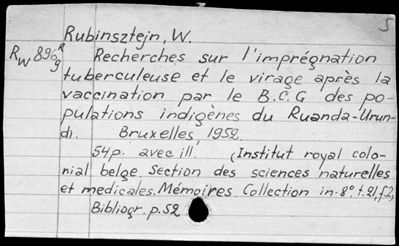 S
Rubinsztejn, W.
RW 896 R
9
Recherches sur l'imprégnation
tuberculeuse et le virage après la
vaccination par le B.C.G des po-
pulations indigènes du Ruanda-Urun-
di. Bruxelles, 1952.
54p. avec ill. (Institut royal colo-
nial belge. Section des sciences naturelles
et medicales. Mémoires. Collection in-8°. t. 21, f 2,
Bibliogr. p. 52